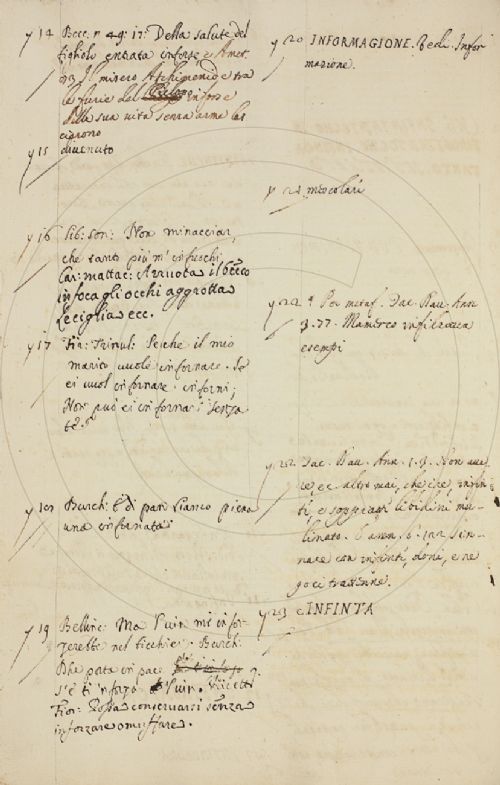 y 14 Bocc. n. 49: 17: Della salute del
figliolo entrata inforse, e Amet.
93 Il misero Achimenide tra
le furie del Ciclopo inforse
della sua vita senza arme la-
sciarono
y 15 divenuto
y 16 Lib: son: Non minacciar,
che tanto più m'infuschi
Car: mattac: Arruota il becco
infoca gli occhi aggrotta
Le ciglia ecc.
y 17 Fir: Trinuz: Perche il mio
marito vuole infornare. Se
ei vuol infornare inforni;
Non può ei infornar senza
te?
Burch: E di pan bianco piena
una infornata
y 19 Bellinc: Ma Vuin mi infor-
zerebbe nel ticchie: Burch:
Che porta in pac:
s'è ti inforzo Vuin. Ricett:
Fior: Possa conservarsi senza
inforzare o muffare.
y 20 INFORMAGIONE. Vedi Infor
mazione.
y 21 mescolari
y 22 9 Per metaf. Dav. Tac. Ann
3. 77. Mamerco infilzava
esempi
y 22 Tac. Dav. Ann. 1. 3. Non ave
ecc. altro mai, che ire, infin-
ti, e soppiatti libidini mu-
linato. E ann. 6. 122
nare con infinti, doni, e ne
goci trattenne.
y 23 e INFINTA